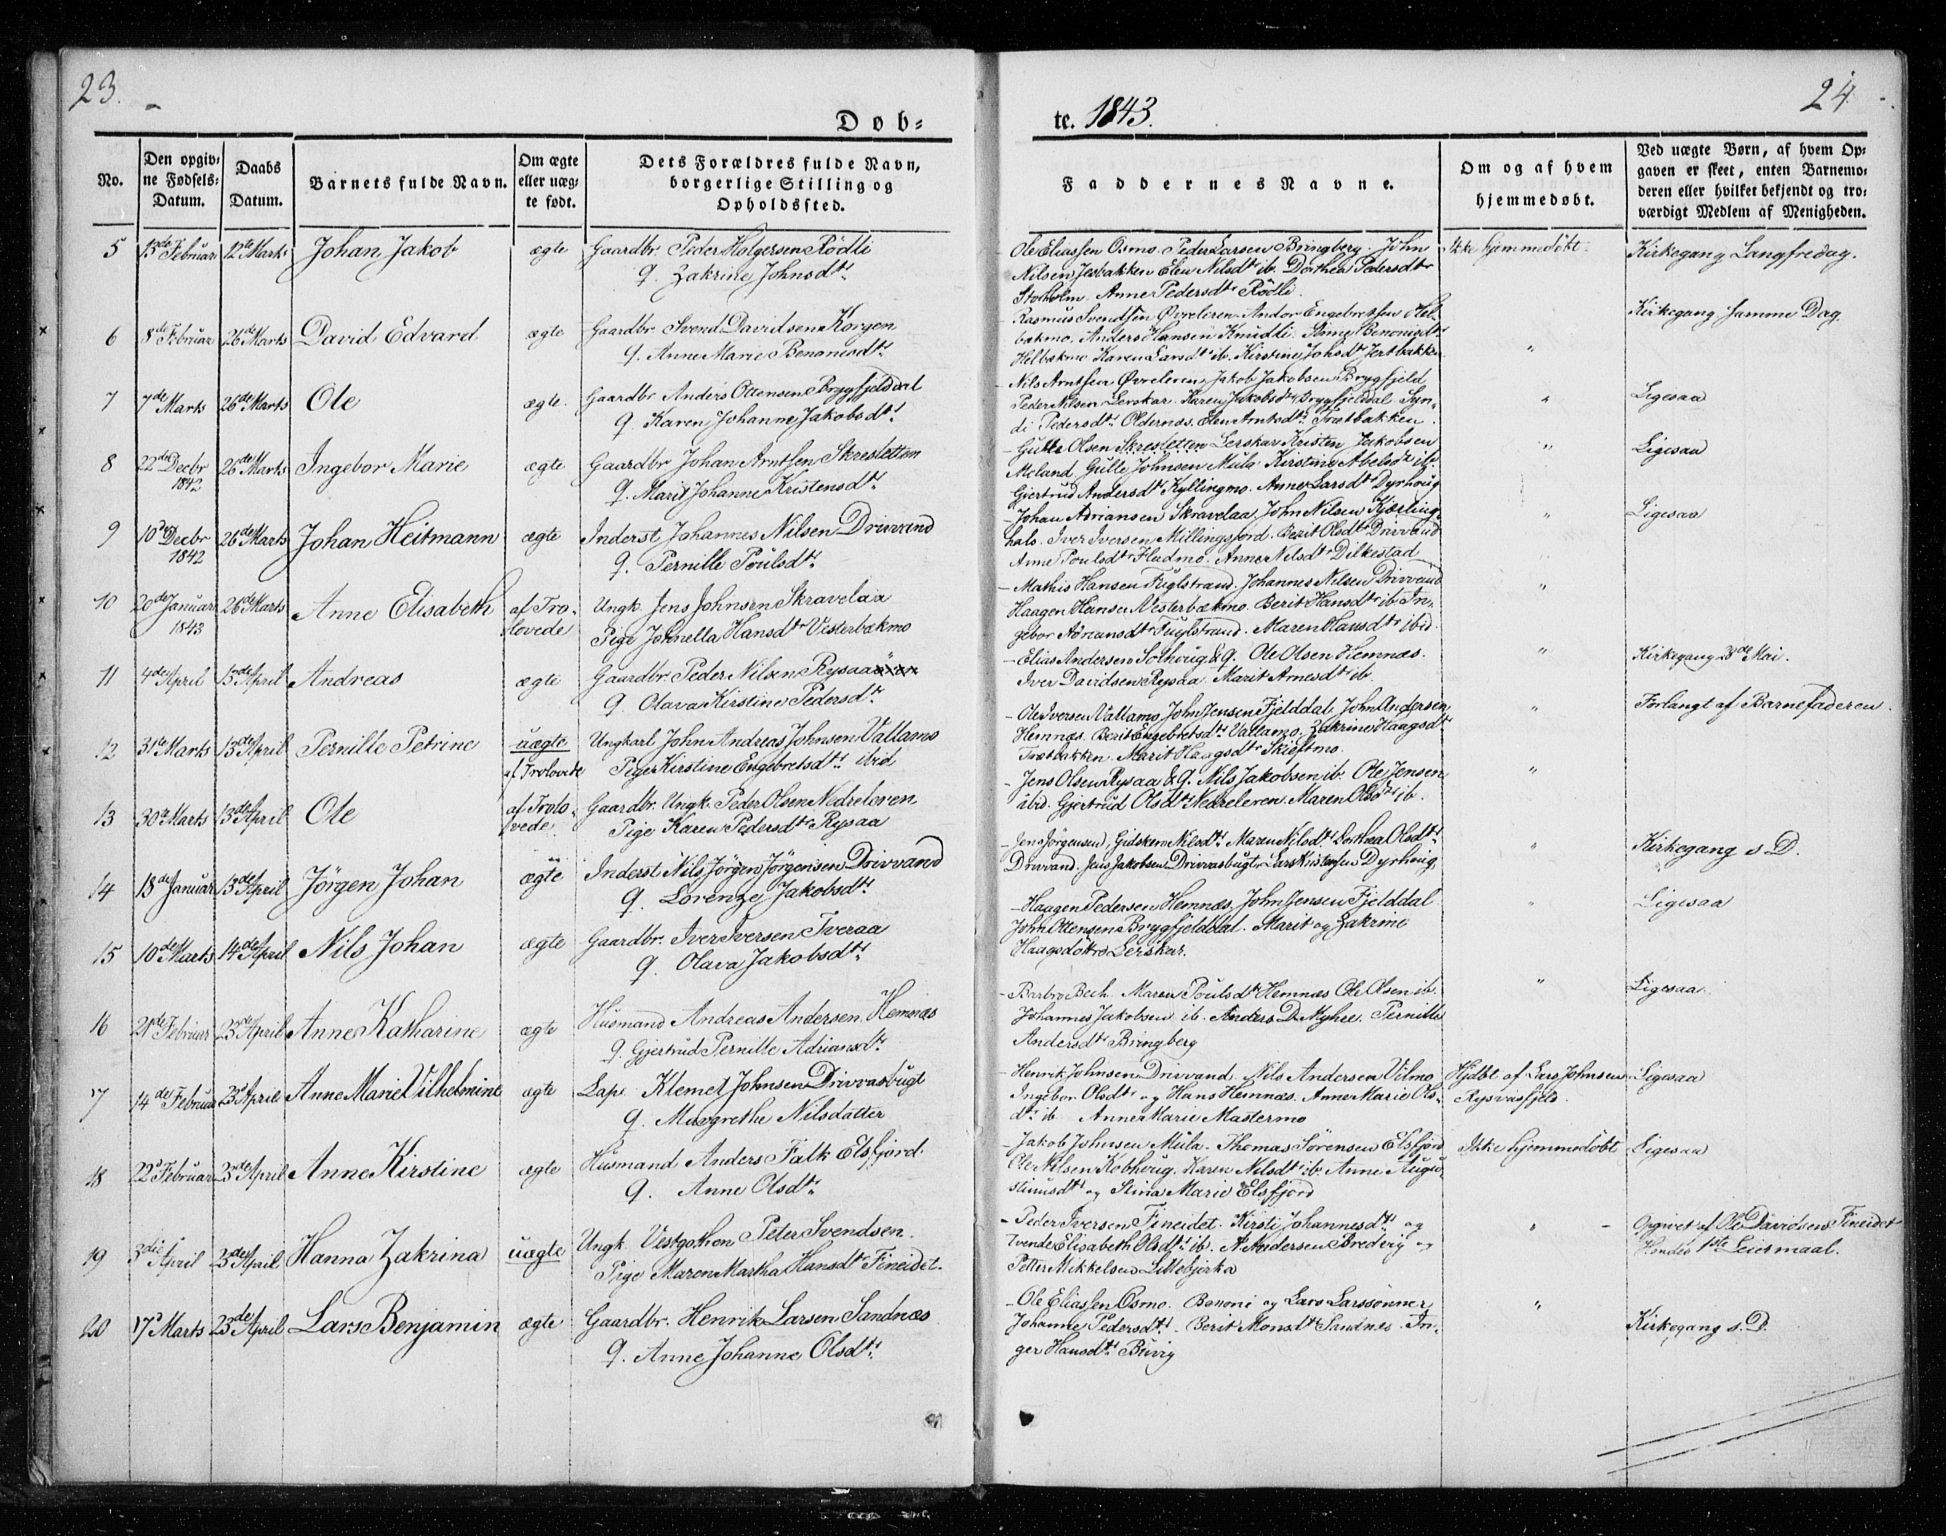 23.
24
Døb=
te. 1843.
No.
Den opgiv=
ne Fødsels=
Datum.
Daabs
Datum.
Barnets fulde Navn.
Om ægte
eller uæg=
te født.
Dets Forældres fulde Navn,
borgerlige Stilling og
Opholdssted.
Faddernes Navne.
Om og af hvem
hjemmedøbt.
Ved uægte Børn, af hvem Op=
gaven er skeet, enten Barnemo=
deren eller hvilket bekjendt og tro=
værdigt Medlem af Menigheden.
5 15de Februar 12te Marts Johan Jakob ægte Gaardbr. Peder Holgersen Rödli
q. Zakrine Johnsdtr
Ole Eliassen Osmo. Peder Larsen Bringberg. John
Nilsen Jesbakken Elen Nilsdtr ib. Dorthea Pedersdtr
Stoholm. Anne Pedersdtr Rödli.
Ikke hjemmedöbt. Kirkegang Langfredag.
6 8de Februar 26de Marts David Edvard ægte Gaardbr Svend Davidsen Korgen
q. Anne Marie Benonisdtr
Rasmus Svendsen Øvreleren Andor Engebretsen Hel-
bækmo. Anders Hansen Knudli. Benonisdtr
Helbækmo Karen Larsdtr ib. Kirstine Johsdtr Jertbakken
" Kirkegang samme Dag.
7 7de Marts 26de Marts Ole ægte. Gaardbr Anders Ottensen Brygfjeldal
q. Karen Johanne Jakobsdtr
- Nils Arntsen Øvreleren, Jakob Jakobsen Brygfjeld
Peder Nilsen Lerskar. Karen Jakobsdtr Brygfjeldal Syn-
di Pedersdtr Oldernæs. Elen Arntsdtr Trætbakken.
" Ligesaa
8 22de Decbr 26de Marts Ingebor Marie ægte Gaardbr Johan Arntsen Skresletten
1842
q. Marit Johanne Kristensdtr
- Gulle Olsen Skresletten Lerskar Kristen Jakobsen
Meland. Gulle Johnsen Mula Kirstine Abelsdtr ib.
Gjertrud Andersdtr Kyllingmo. Anne Larsdtr Dyrhoug
" Ligesaa
9 10de Decbr 26de Marts Johan Heitmann ægte Inderst Johannes Nilsen Drivvand
1842
q. Pernille Poulsdtr
- Johan Adriansen Skravelaa John Nilsen Kjerling-
hals. Iver Iversen Millingsjord. Berit Olsdtr Drivvand
Anne Poulsdtr Fludmo. Anne Nilsdtr Dilkestad
" Ligesaa
10 20de Januar 26de Marts Anne Elisabeth af Tro-
1843
lovede
Ungk. Jens Johnsen Skravelaa
Pige Johnella Hansdtr Vesterbækmo
- Mathis Hansen Fuglstrand. Johannes Nilsen Drivvand
Haagen Hansen Vesterbækmo. Berit Hansdtr ib. In-
gebor Adriansdtr Fuglstrand. Maren Hansdtr ibid.
"
11 4de April 13de April Andreas ægte Gaardbr. Peder Nilsen Rysaa
q. Olava Kirstine Pedersdtr
- Elias Andersen Solhoug & q. Ole Olsen Hemnæs.
Iver Davidsen Rysaa. Marit Arnesdtr ib.
" Kirkegang 28de Mai.
12 31te Marts 13de April Pernille Petrine uægte
af Trolovede
Ungkarl John Andreas Johnsen Vallamo
Pige Kirstine Engebretsdtr ibid
- Ole Iversen Vallamo, John Jensen Fjelddal, John Andersen
Hemnæs. Berit Engebretsdtr Vallamo. Zakrine Haagsdtr
Træsbakken Marit Haagsdtr Skieftmo.
" Forlangt af Barnefaderen.
13 30te Marts 13de April Ole af Trolo-
vede
Gaardbr. Ungk. Peder Olsen Nedreleren
Pige Karen Pedersdtr Rysaa
- Jens Olsen Rysaa & q. Nils Jakobsen ib. Ole Jensen
ibid. Gjertrud Olsdtr Nedreleren. Maren Olsdtr ib.
"
14 18de Januar 13de April Jörgen Johan ægte Inderst Nils Jörgen Jörgensen Drivvand
q. Lorenze Jakobsdtr
Jens Jörgensen, Gidsken Nilsdtr Maren Nilsdtr Dorthea Olsdtr
Drivvand. Jens Jakobsen Drivvasbugt Lars Kristensen Dyrhoug,
" Kirkegang s D.
15 10de Marts 14de April Nils Johan ægte Gaardbr. Iver Iversen Tveraa
q. Olava Jakobsdtr
- Haagen Pedersen Hemnæs, John Jensen Fjelddal
John Ottensen Brygfjeldal. Marit og Zakrine
Haagsdöttre Lerskar.
" Ligesaa
16 21de Februar 23de April Anne Katharine ægte Husmand Andreas Andersen Hemnæs
q. Gjertrud Pernille Adriansdtr
- Barbro Bech. Maren Poulsdtr Hemnæs Ole Olsen ib.
Johannes Jakobsen ib. Anders D. Myhre. Pernille
Andersdtr Bringberg
" Ligesaa.
17 14de Februar 23de April Anne Marie Vilhelmine ægte Lap. Klemet Johnsen Drivvasbugt
q. Margrethe Nilsdatter
- Henrik Johnsen Drivvand. Nils Andersen Vilmo
Ingebor Olsdtr og Hans Hemnæs. Anne Marie Ols-
dtr ib. Anne Marie Mastermo
Hjdbt af Lars Johnsen
Rysvasfjeld.
Ligesaa
18 22de Februar 23de April Anne Kirstine ægte Husmand Anders Falk Elsfjord.
q. Anne Olsdtr
- Jakob Johnsen Mula. Thomas Sörensen Elsfjord
Ole Nilsen Kobhoug. Karen Nilsdtr ib. Anne Augu-
stinusdtr og Stina Marie Elsfjord
Ikke hjemmedöbt Ligesaa
19 3die April 23de April Hanna Zakrina uægte Ungk. Vestgothen Peter Svendsen.
Pige Maren Martha Hansdtr Fineidet.
- Peder Iversen Fineidet. Kirsti Johannesdtr og
Tvende Elisabeth Olsdtr ib. A. Andersen Bredvig og
Petter Mikkelsen Lillebjerka
" - Opgivet af Ole Davidsen Fineidet
Hendes 1ste Leiermaal.
20 17de Marts 23de April Lars Benjamin ægte Gaardbr. Henrik Larsen Sandnæs
q. Anne Johanne Olsdtr
- Ole Eliassen Osmo. Benoni og Lars Larssönner,
Johanne Pedersdtr. Berit Monsdtr Sandnes. In-
ger Hansdtr
" Kirkegang s. D.